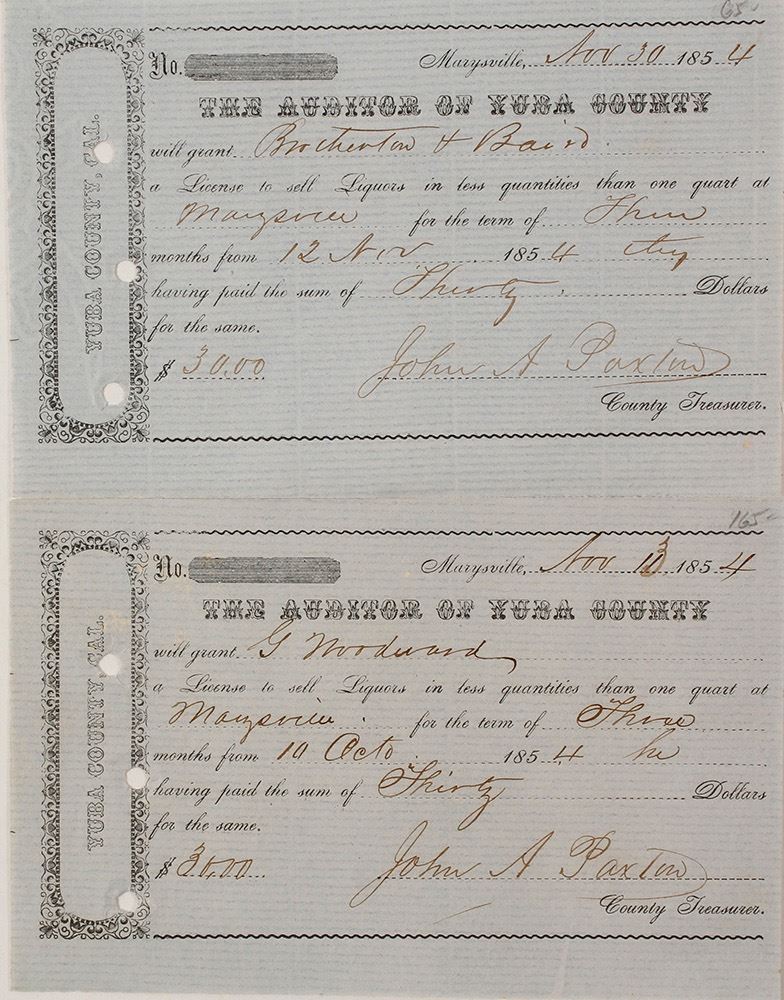 65-
YUBA COUNTY, CAL.
No. Marysville, Nov 30 1854
THE AUDITOR OF YUBA COUNTY
will grant Brotherton & Baird
a License to sell Liquors in less quantities than one quart at
Marysville for the term of Three
months from 12 Nov 1854 they
having paid the sum of Thirty Dollars
for the same.
$ 30.00 John A Paxton
County Treasurer.
165-
YUBA COUNTY, CAL.
No. Marysville, Nov 13 1854
THE AUDITOR OF YUBA COUNTY
will grant G Woodward
a License to sell Liquors in less quantities than one quart at
Marysville for the term of Three
months from 10 Octo 1854 he
having paid the sum of Thirty Dollars
for the same.
$ 30.00 John A Paxton
County Treasurer.